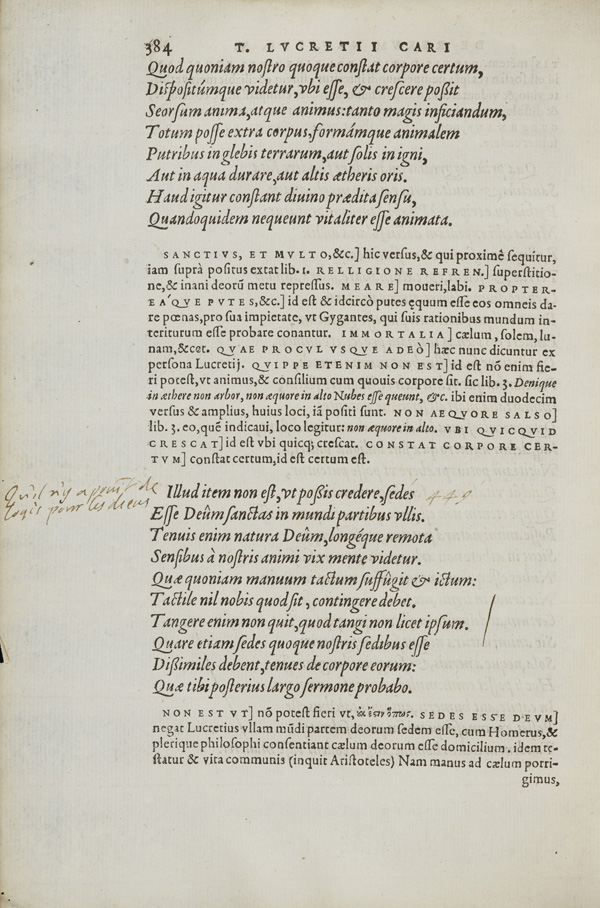 384 T. LVCRETII CARI
Quod quoniam nostro quoque constat corpore certum,
Dispositúmque videtur, vbi esse, & crescere poßit
Seorsum anima, atque animus: tanto magis inficiandum,
Totum posse extra corpus, formámque animalem
Putribus in glebis terrarum, aut solis in igni,
Aut in aqua durare, aut altis ætheris oris.
Haud igitur constant diuino prædita sensu,
Quandoquidem nequeunt vitaliter esse animata.
SANCTIVS, ET MVLTO, &c.] hic versus, & qui proximè sequitur,
iam suprà positus extat lib. 1. RELLIGIONE REFREN.] superstitio-
ne, & inani deorū metu repressus. MEARE] moueri, labi. PROPTER-
EA'QVE PVTES, &c.] id est & idcircò putes ęquum esse eos omneis da-
re pœnas, pro sua impietate, vt Gygantes, qui suis rationibus mundum in-
teriturum esse probare conantur. IMMORTALIA] cælum, solem, lu-
nam, & cet. QVAE PROCVL VSQVE ADEÒ] hæc nunc dicuntur ex
persona Lucretij. QVIPPE ETENIM NON EST] id est nō enim fie-
ri potest, vt animus, & consilium cum quouis corpore sit. sic lib. 3. Denique
in æthere non arbor, non æquore in alto Nubes esse queunt, &c. ibi enim duodecim
versus & amplius, huius loci, iā positi sunt. NON AEQVORE SALSO]
lib. 3. eo, quē indicaui, loco legitur: non æquore in alto. VBI QVICQVID
CRESCAT] id est vbi quicq; crescat. CONSTAT CORPORE CER-
TVM] constat certum, id est certum est.
Qu'il n'y a point de
logis pour les dieus
Illud item non est, vt poßis credere, sedés 449
Esse Deûm sanctas in mundi partibus vllis.
Tenuis enim natura Deûm, longéque remota
Sensibus à nostris animi vix mente videtur.
Quæ quoniam manuum tactum suffûgit & ictum:
Tactile nil nobis quod sit, contingere debet.
Tangere enim non quit, quod tangi non licet ipsum.
Quare etiam sedes quoque nostris sedibus esse
Dißimiles debent, tenues de corpore eorum:
Quæ tibi posterius largo sermone probabo.
NON EST VT] nō potest fieri vt, SEDES ESSE DEVM]
negat Lucretius vllam mūdi partem deorum sedem esse, cum Homerus, &
plerique philosophi consentiant cælum deorum esse domicilium. idem te-
statur & vita communis (inquit Aristoteles) Nam manus ad cælum porri-
gimus,